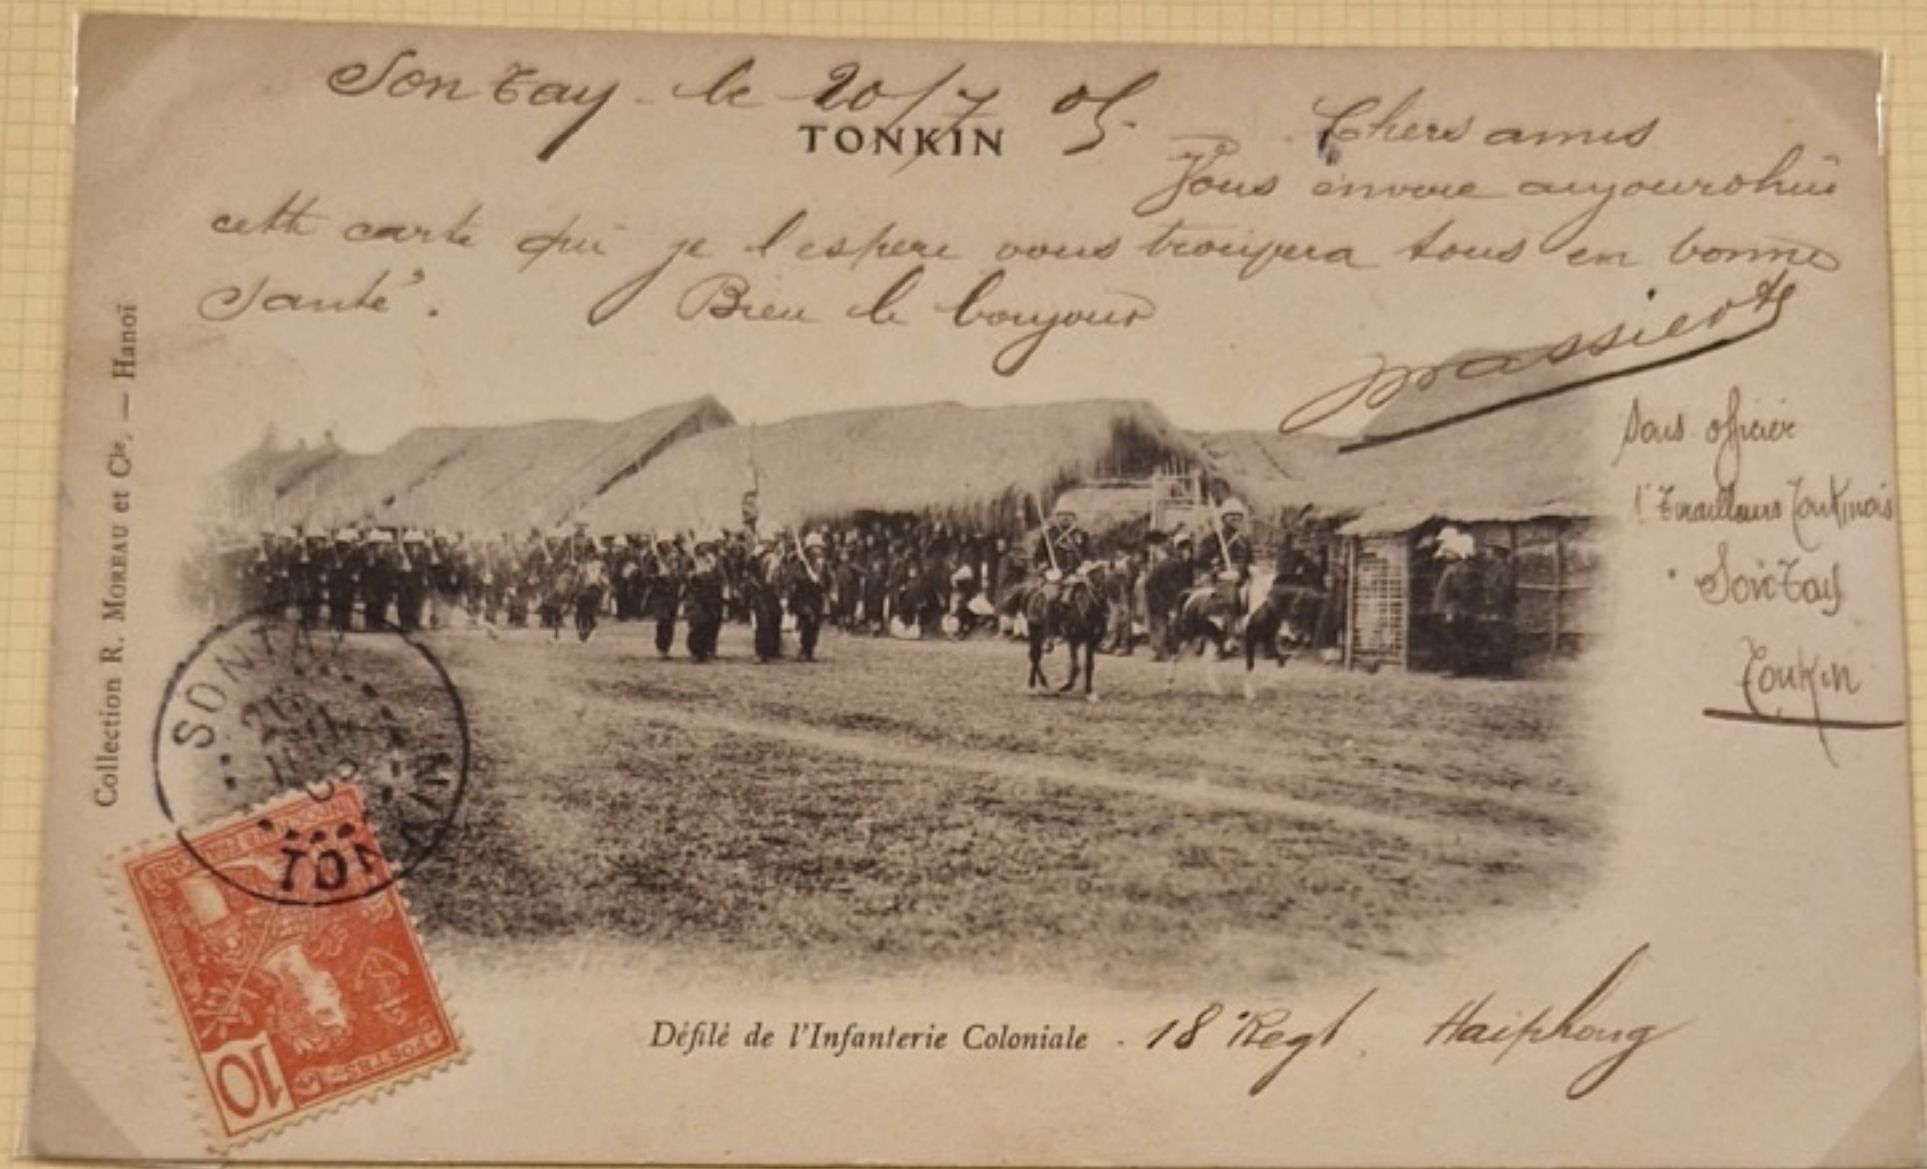 Son Tay - le 20/7 05.
TONKIN
Chers amis
Vous envoie aujourdhui
cette carte qui je l'espere vous trouvera tous en bonne
Santé. Bien le bonjour
Sous officier
Tirailleurs Tonkinois
Son Tay
Tonkin
Collection R. MOREAU et Cie, — Hanoï
SONTAY
TONKIN
INDO-CHINE FRANÇAISE
POSTES
10
Défilé de l'Infanterie Coloniale - 18e Regt. Haiphong